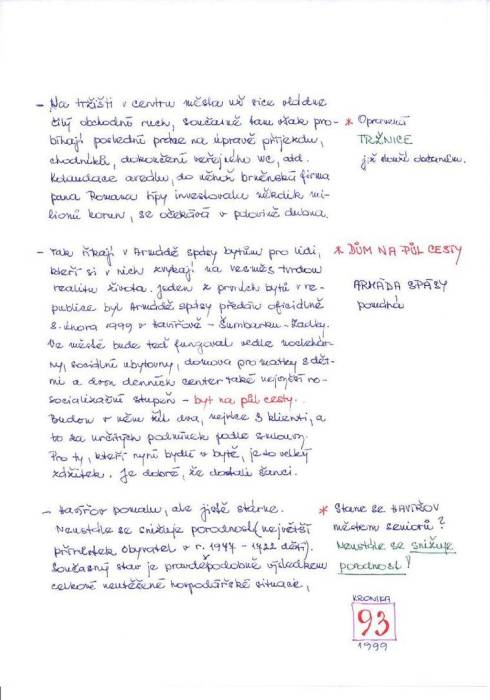 - Na tržišti v centru města už sice vládne
čilý obchodní ruch, současně tam však pro-
bíhají poslední práce na úpravě příjezdu,
chodníků, dokončení veřejného WC, atd.
Kolaudace areálu, do něhož brněnská firma
pana Romana Řípy investovala několik mi-
lionů korun, se očekává v polovině dubna.
* Opravená
TRŽNICE
již slouží občanům.
- Tak říkají v Armádě spásy bytům pro lidi,
kteří si v nich zvykají na vesměs tvrdou
realitu života. Jeden z prvních bytů v re-
publice byl Armádě spásy předán oficiálně
8. února 1999 v Havířově - Šumbarku - .
Ve městě bude teď fungovat vedle noclehár-
ny, sociální ubytovny, domova pro matky s dět-
mi a dvou denních center také nejvyšší re-
socializační stupeň - byt na půl cesty.
Budou v něm žít dva, nejvíce 3 klienti, a
to za určitých podmínek podle smlouvy.
Pro ty, kteří nyní bydlí v bytě, je to velký
zážitek. Je dobré, že dostali šanci.
* DŮM NA PŮL CESTY
ARMÁDA SPÁSY
pomáhá
- Havířov pomalu, ale jistě stárne.
Neustále se snižuje porodnost (největší
přírůstek obyvatel v r. 1977 - 1722 dětí).
Současný stav je pravděpodobně výsledkem
celkově neutěšené hospodářské situace,
* Stane se HAVÍŘOV
městem seniorů?
Neustále se snižuje
porodnost!
KRONIKA
93
1999